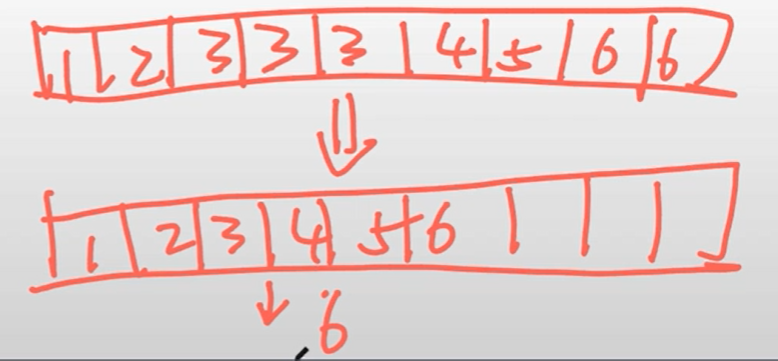 1 2 3 3 3 4 5 6 6
1 2 3 4 5 6
6